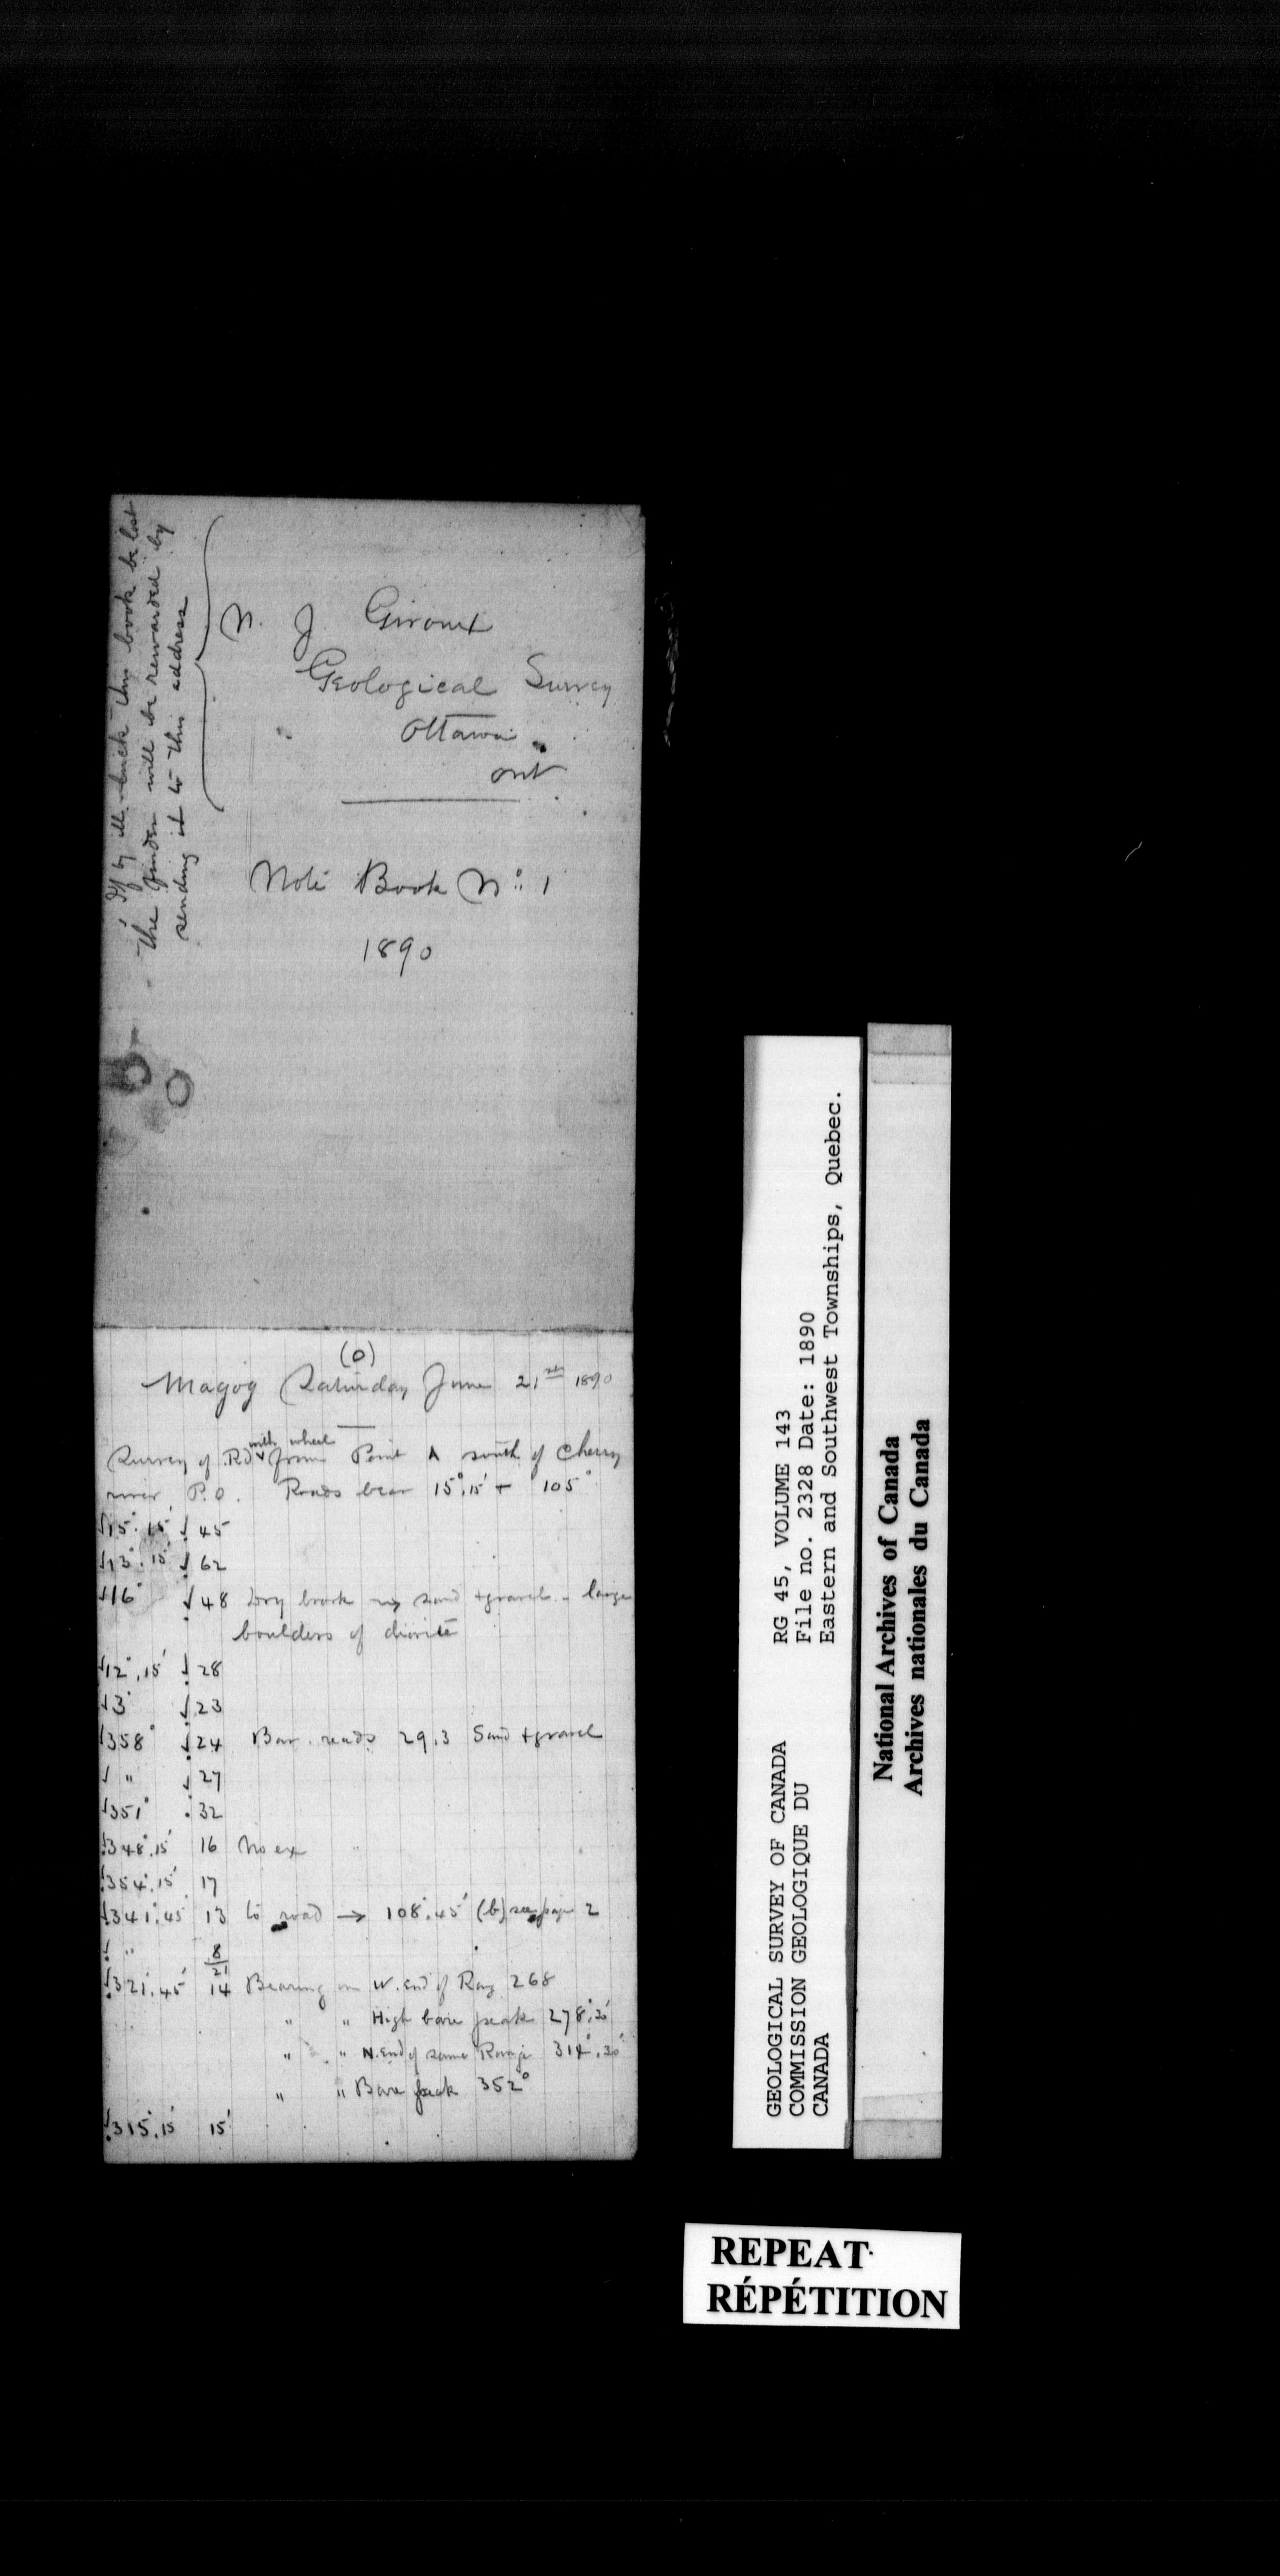 If by ill-luck this book be lost
the finder will be rewarded by
sending it to this address
N. J. Giroux
Geological Survey
Ottawa
Ont
Note Book No: 1
1890
(0)
Magog Saturday June 21st 1890
Survey of Rd with wheel from Point A south of Cherry
river P.O. Roads bear 15°.15' + 105°
15°.15' 45
13°.15' 62
16° 48 Dry brook sand + gravel - large
boulders of diorite
12°.15' 28
3° 23
358° 24 Bar. reads 29.3 Sand + gravel
" 27
351° 32
348°.15' 16 No ex
354°.15' 17
341°.45' 13 to road → 108°.45' (b) see page 2
" 8
21
321°.45' 14 Bearing on W. end of Rang 268
" " High bare peak 278°.30'
" " N. end of same Range 314°.30'
" " Bare peak 352°
315°.15' 15
GEOLOGICAL SURVEY OF CANADA
COMMISSION GEOLOGIQUE DU
CANADA
RG 45, VOLUME 143
File no. 2328 Date: 1890
Eastern and Southwest Townships, Quebec.
National Archives of Canada
Archives nationales du Canada
REPEAT
RÉPÉTITION